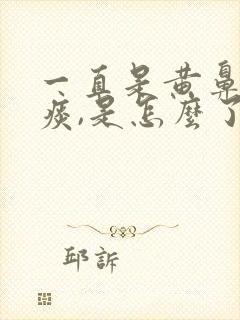 一直是黄鼻
痰,是怎麽了
邱訴